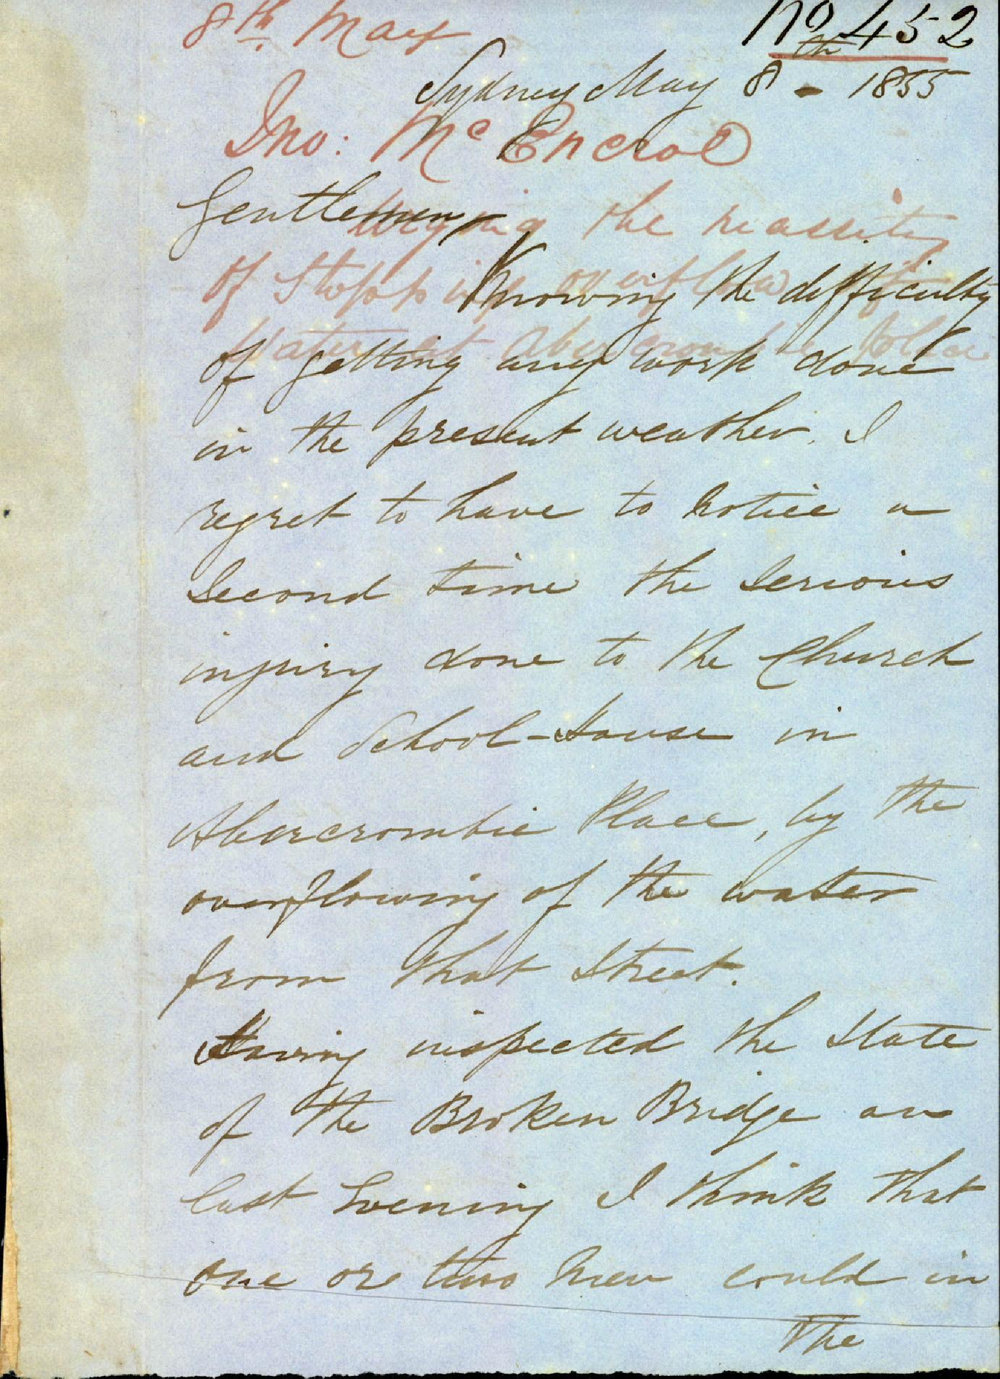 8th. May
No 452
Sydney May 8th - 1855
Jno: McEncroe
Gentlemen,
Urging the necessity
of Stopping overflow
Knowing the difficulty
Water at Abercrombie Place
of getting any work done
in the present weather. I
regret to have to notice a
Second time the serious
injury done to the Church
and School-House in
Abercrombie Place, by the
overflowing of the water
from that Street.
Having inspected the State
of the Broken Bridge on
last Evening I think that
one or two men could in
the